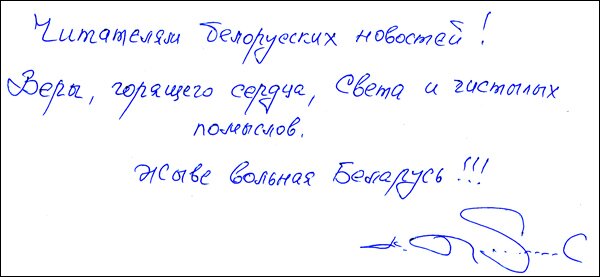 Читателям белорусских новостей!
Веры, горящего сердца, Света и чистых
помыслов.
Жыве вольная Беларусь!!!